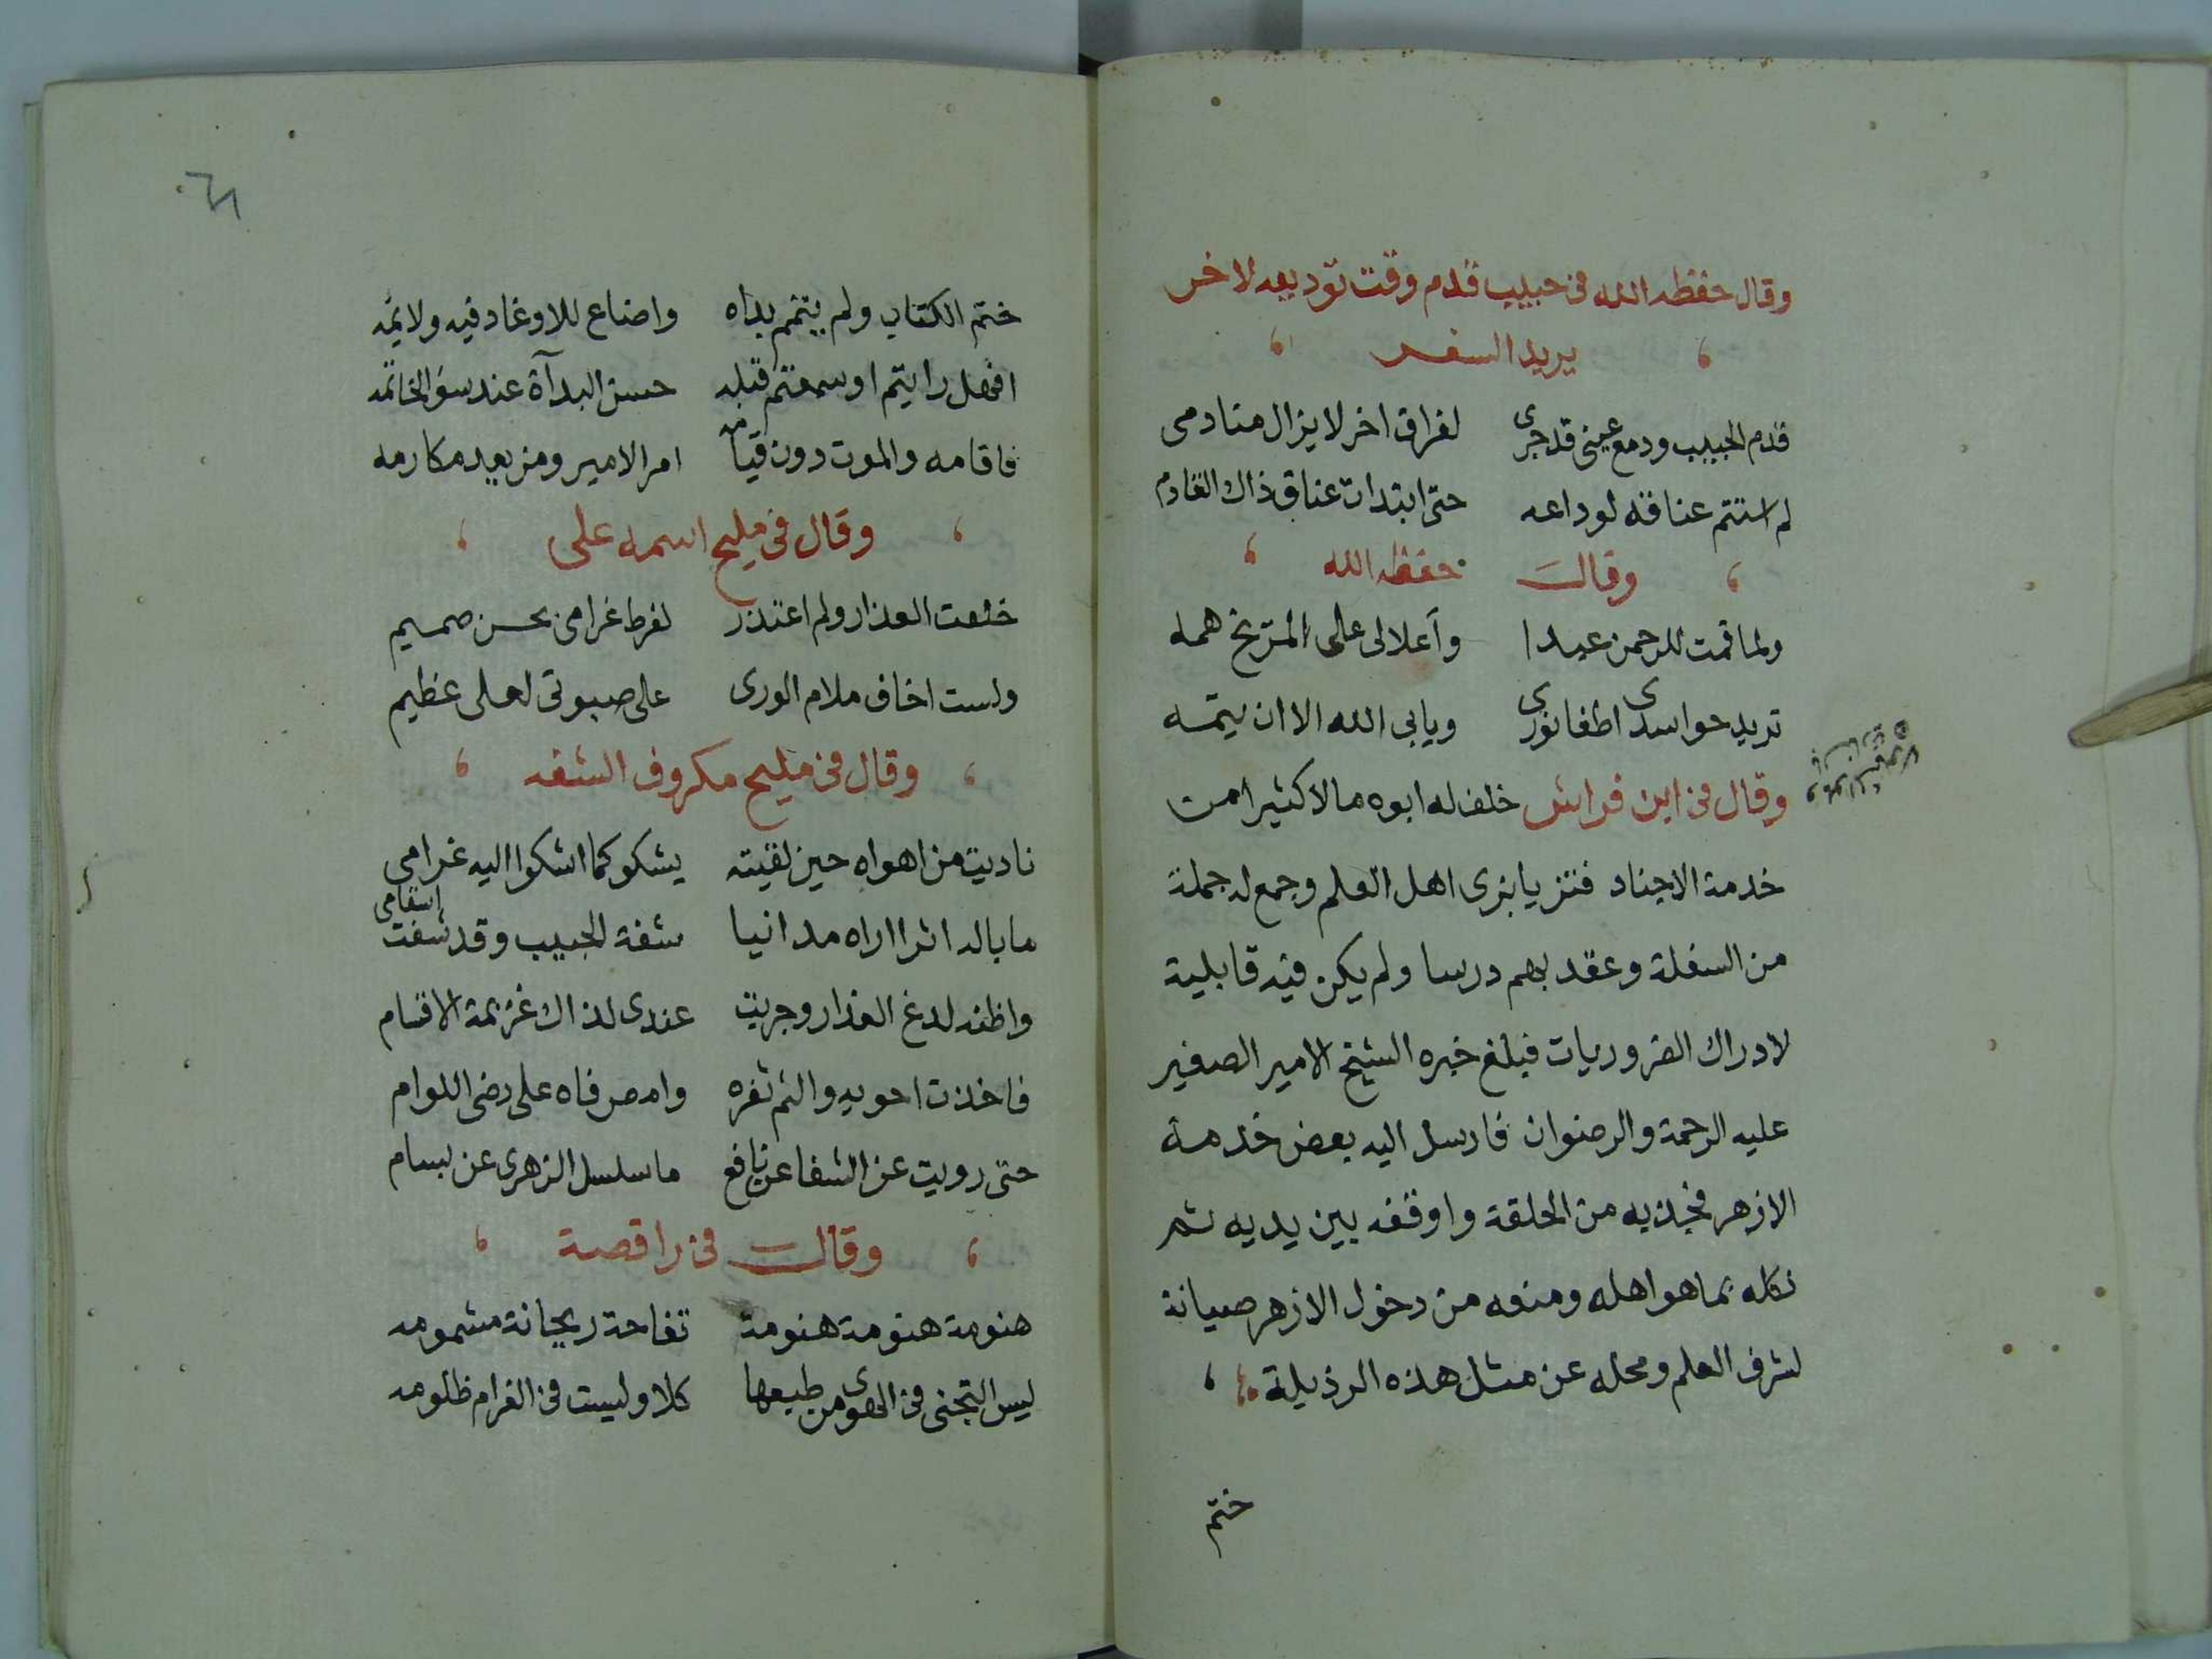 وقال حفظه الله فى حبيب قدم وقت توديعه لاخر
يريد السفر
قدم الحبيب ودمع عينى قدجرى لفراق اخر لايزال منادمى
لم استتم عناقه لوداعه حتى ابتدات عناق ذاك القادم
وقال حفظه الله
ولما قمت للرحمن عبدا وأعلالى على المريخ همه
تريد حواسدى اطفا نورى ويابى الله الا ان يتمه
وقال فى ابن فراش خلف له ابوه مالا كثيرا من
خدمة الاجناد فتزيا بزى اهل العلم وجمع له جملة
من السفلة وعقد بهم درسا ولم يكن فيه قابلية
لادراك الضروريات فبلغ خبره الشيخ الامير الصغير
عليه الرحمة والرضوان فارسل اليه بعض خدمة
الازهر فجذبه من الحلقة واوقفه بين يديه ثم
نكله بما هو اهله ومنعه من دخول الازهر صيانة
لشرف العلم ومحله عن مثل هذه الرذيلة
ختم
٦١
ختم الكتاب ولم يتمم بداه واضاع للاوغاد فيه ولائمه
افهل رايتم او سمعتم قبله حسن البدآة عند سؤ الخاتمه
فاقامه والموت دون قيامه امر الامير ومن يعد مكارمه
وقال فى مليح اسمه على
خلعت العذار ولم اعتذر لفرط غرامى بحسن صميم
ولست اخاف ملام الورى على صبوتى لعلى عظيم
وقال فى مليح مكروف الشفه
ناديت من اهواه حين لقيته يشكو كما اشكوا اليه غرامى
ما باله اثرا اراه مدانيا شفة الحبيب وقد شفت اسقامى
واظنه لدغ العذار وجربت عندى لذاك عزيمة الاقسام
فاخذت احويه والثم ثغره وامص فاه على رضى اللوام
حتى رويت عن الشفا عن نافع ما سلسل الزهرى عن بسام
وقال فى راقصة
هنومة هنومة هنومة تفاحة ريحانة مشمومه
ليس التجنى فى الهوى من طبعها كلا وليست فى الغرام ظلومه